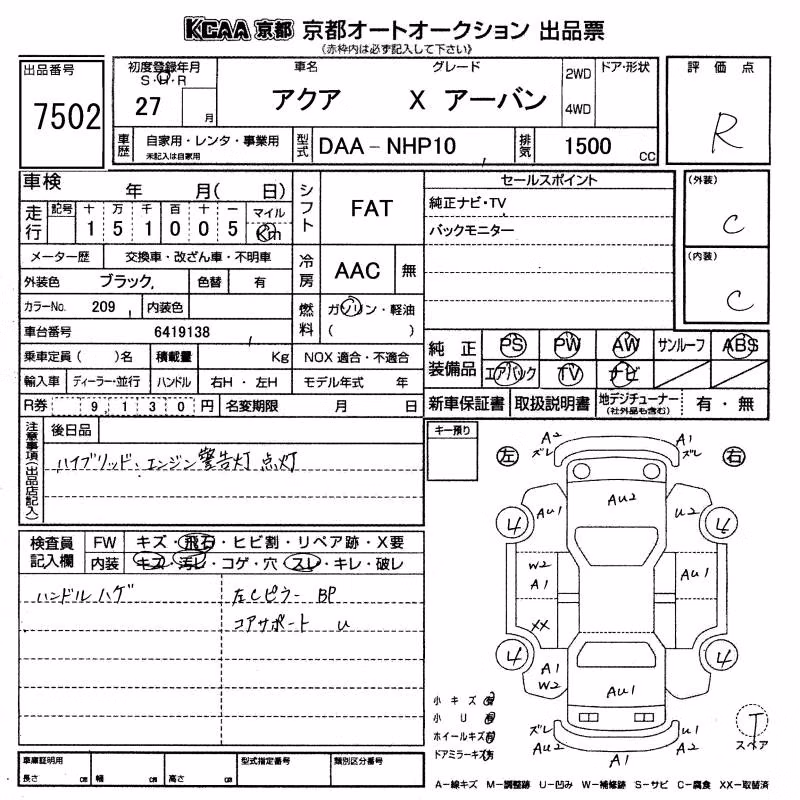 KCAA 京都 京都オートオークション 出品票
(赤枠内は必ず記入して下さい)
出品番号
7502
初度登録年月
S・H・R
27 月
車名 グレード
アクア X アーバン
2WD
4WD
ドア・形状
評価点
R
車歴
自家用・レンタ・事業用
未記入は自家用
型式
DAA-NHP10
排気
1500 CC
車検 年 月( 日)
走行
記号 十 万 千 百 十 一 マイル
1 5 1 0 0 5 Km
メーター歴 交換車・改ざん車・不明車
外装色 ブラック, 色替 有
カラーNo. 209 内装色
車台番号 6419138
乗車定員( )名 積載量 Kg
輸入車 ディーラー・並行 ハンドル 右H・左H
R券 9,130円 名変期限 月 日
シフト FAT
冷房 AAC 無
燃料 ガソリン・軽油
( )
NOX 適合・不適合
モデル年式 年
セールスポイント
純正ナビ・TV
バックモニター
(外装)
C
(内装)
C
純正装備品
PS PW AW サンルーフ ABS
エアバック TV ナビ
新車保証書 取扱説明書 地デジチューナー
(社外品も含む)
有・無
注意事項(出品店記入)
後日品
ハイブリッド、エンジン警告灯 点灯
検査員記入欄
FW キズ・飛石・ヒビ割・リペア跡・X要
内装 キズ・汚レ・コゲ・穴・スレ・キレ・破レ
ハンドルハゲ
左Cピラー BP
コアサポート U
キー預り
左 右
A2
ズレ
A1
ズレ
AU1 AU2 U2
4 4
W2
A1
AU1
XX
4 4
A1
W2
AU1
ズレ
AU2
U1
A2
A1
小キズ有
小U有
ホイールキズ有
ドアミラーキズ有
T
スペア
車庫証明用
長さ cm 幅 cm 高さ cm
型式指定番号
類別区分番号
A-線キズ M-調整跡 U-凹み W-補修跡 S-サビ C-腐食 XX-取替済